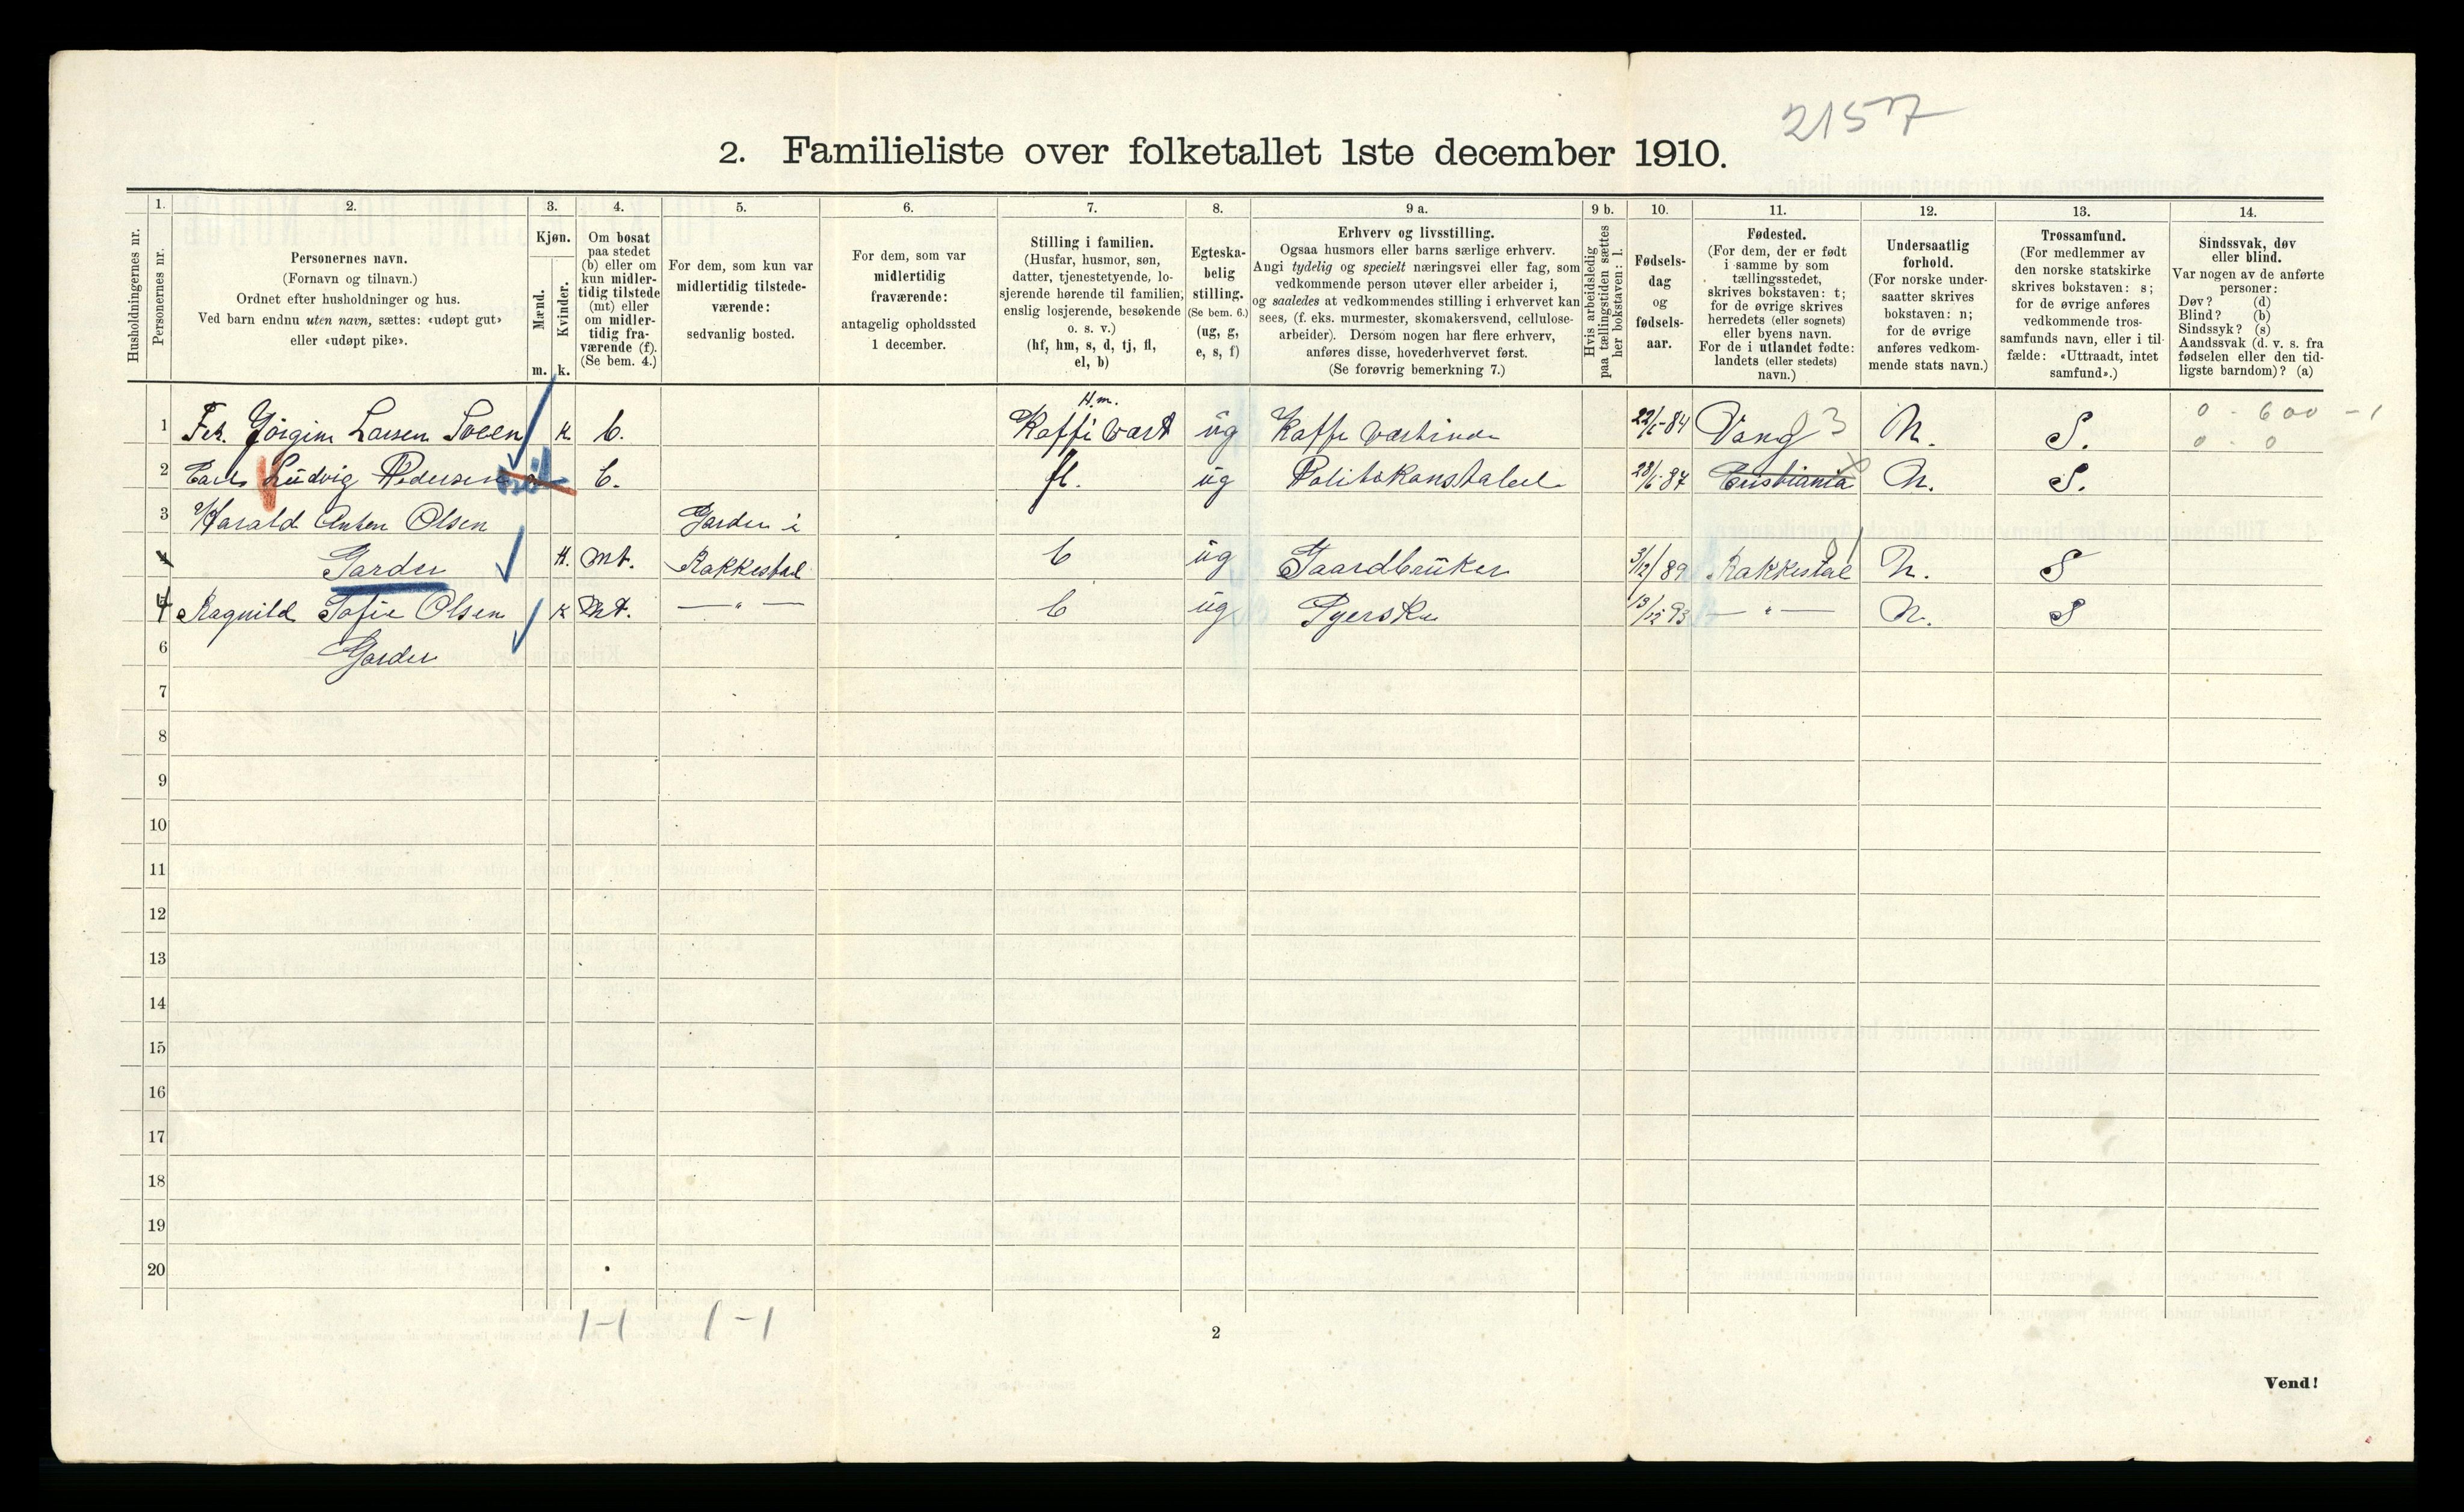 2157
2. Familieliste over folketallet 1ste december 1910.
Husholdningernes nr.
1.
Personernes nr.
2.
Personernes navn.
(Fornavn og tilnavn.)
Ordnet efter husholdninger og hus.
Ved barn endnu uten navn, sættes: «udøpt gut»
eller «udøpt pike».
3.
Kjøn.
Mænd.
Kvinder.
m. k.
4.
Om bosat
paa stedet
(b) eller om
kun midler-
tidig tilstede
(mt) eller
om midler-
tidig fra-
værende (f).
(Se bem. 4.)
5.
For dem, som kun var
midlertidig tilstede-
værende:
sedvanlig bosted.
6.
For dem, som var
midlertidig
fraværende:
antagelig opholdssted
1 december.
7.
Stilling i familien.
(Husfar, husmor, søn,
datter, tjenestetyende, lo-
sjerende hørende til familien,
enslig losjerende, besøkende
o. s. v.)
(hf, hm, s, d, tj, fl,
el, b)
8.
Egteska-
belig
stilling.
(Se bem. 6.)
(ug, g,
e, s, f)
9 a.
Erhverv og livsstilling.
Ogsaa husmors eller barns særlige erhverv.
Angi tydelig og specielt næringsvei eller fag, som
vedkommende person utøver eller arbeider i,
og saaledes at vedkommendes stilling i erhvervet kan
sees, (f. eks. murmester, skomakersvend, cellulose-
arbeider). Dersom nogen har flere erhverv,
anføres disse, hovederhvervet først.
(Se forøvrig bemerkning 7.)
9 b.
Hvis arbeidsledig
paa tællingstiden sættes
her bokstaven: l.
10.
Fødsels-
dag
og
fødsels-
aar.
11.
Fødested.
(For dem, der er født
i samme by som
tællingsstedet,
skrives bokstaven: t;
for de øvrige skrives
herredets (eller sognets)
eller byens navn.
For de i utlandet fødte:
landets (eller stedets)
navn.)
12.
Undersaatlig
forhold.
(For norske under-
saatter skrives
bokstaven: n;
for de øvrige
anføres vedkom-
mende stats navn.)
13.
Trossamfund.
(For medlemmer av
den norske statskirke
skrives bokstaven: s;
for de øvrige anføres
vedkommende tros-
samfunds navn, eller i til-
fælde: «Uttraadt, intet
samfund».)
14.
Sindssvak, døv
eller blind.
Var nogen av de anførte
personer:
Døv? (d)
Blind? (b)
Sindssyk? (s)
Aandssvak (d. v. s. fra
fødselen eller den tid-
ligste barndom)? (a)
H.m.
1 Frk. Jørgine Larsen Sveen k. b. Kaffi vært ug Kaffe værtinde 22/5-84 Vang 3 N. S. 0 - 600 - 1
0 - 0
2 Carl Ludvig Pedersen b. fl. ug Politikonstabel 28/6-87 Cristiania N. S.
3 Harald Anton Olsen Garder i
4 Garder M. mt. Rakkestad b ug Gaardbruker 3/12/89 Rakkestad 01 N. S
4 Ragnild Sofie Olsen k mt. — " — b ug Syerske 13/12 93 — " — N. S
6 Garder
7
8
9
10
11
12
13
14
15
16
17
18
19
20
1-1 1-1
2
Vend!